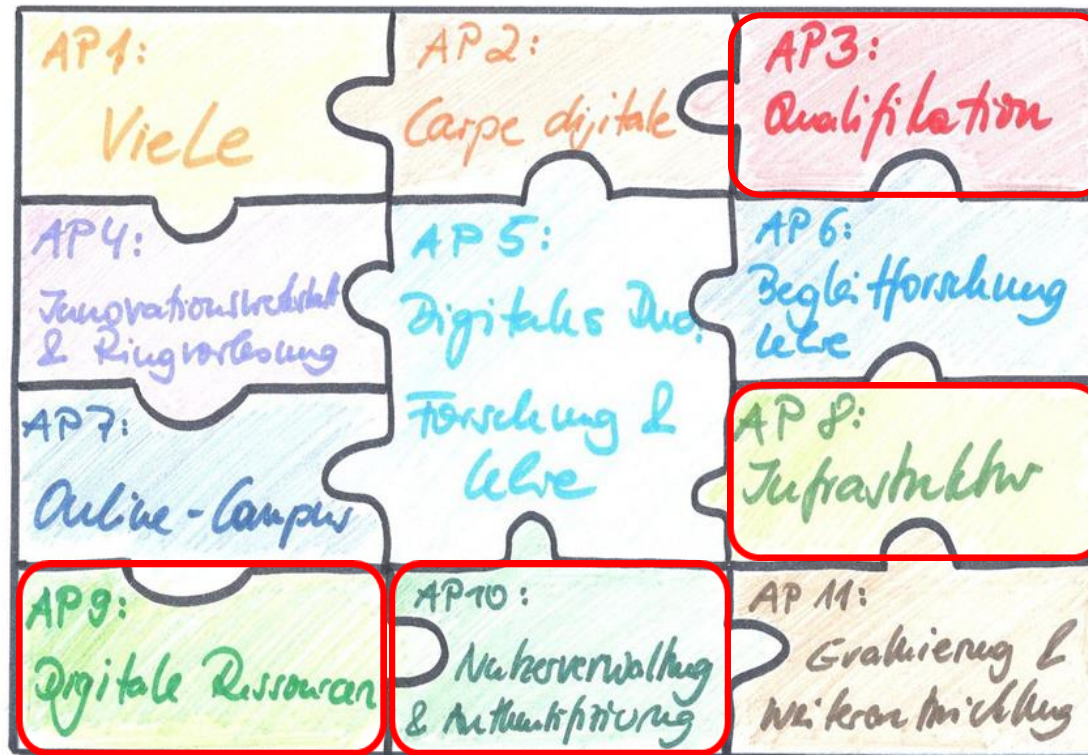 AP1:
Viele
AP2:
Carpe digitale
AP3:
Qualifikation
AP4:
Innovationswerkstatt
& Ringvorlesung
AP5:
Digitales Duo:
Forschung &
Lehre
AP6:
Begleitforschung
Lehre
AP7:
Online-Campus
AP8:
Infrastruktur
AP9:
Digitale Ressourcen
AP10:
Nutzerverwaltung
& Authentifizierung
AP11:
Evaluierung &
Weiterentwicklung